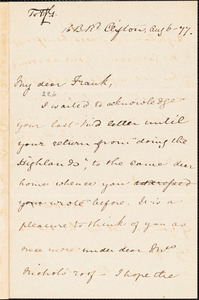 16 B. Rd Clifton, Aug 6 - 77.
My dear Frank,
I waited to acknowledge
your last kind letter until
your return from "doing the
Highlands" to the same dear
home whence you
you wrote before. It is a
pleasure to think of you as
once more under dear Mrs
Nichol's roof - I hope the